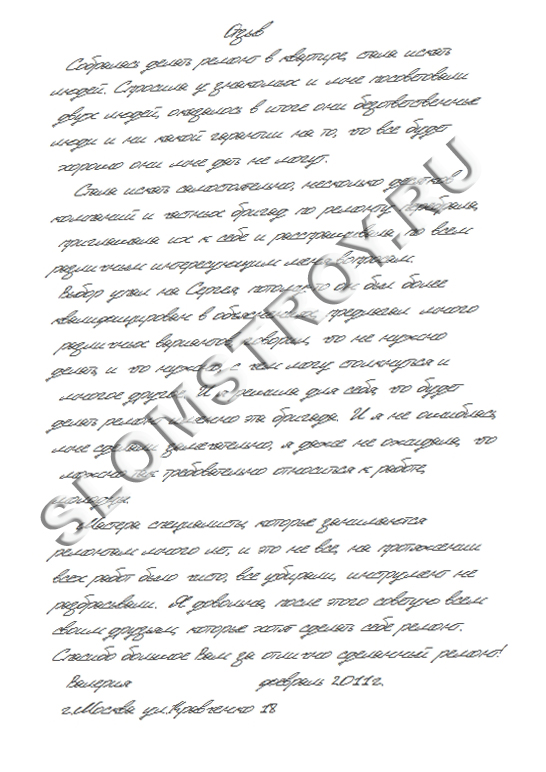 Отзыв
Собралась делать ремонт в квартире, стала искать
людей. Спросила у знакомых и мне посоветовали
двух людей, оказалось в итоге они безответственные
люди и ни какой гарантии на то, что все будет
хорошо они мне дать не могут.
Стала искать самостоятельно, несколько десятков
компаний и частных бригад по ремонту перебрала,
приглашала их к себе и расспрашивала, по всем
различным интересующим меня вопросам.
Выбор упал на Сергея, потому что он был более
квалифицирован в объяснениях, предлагал много
различных вариантов, говорил, что не нужно
делать, и что нужно, с чем могу столкнуться и
многое другое. И я решила для себя, что будет
делать ремонт именно эта бригада. И я не ошиблась,
мне сделали замечательно, я даже не ожидала, что
можно так требовательно относиться к работе,
молодцы.
Мастера специалисты, которые занимаются
ремонтам много лет, и это не все, на протяжении
всех работ было чисто, все убирали, инструмент не
разбрасывали. Я довольна, после этого советую всем
своим друзьям, которые хотят сделать себе ремонт.
Спасибо большое Вам за отлично сделанный ремонт!
Валерия февраль 2011г.
г.Москва ул.Кравченко 18
SLOMSTROY.RU